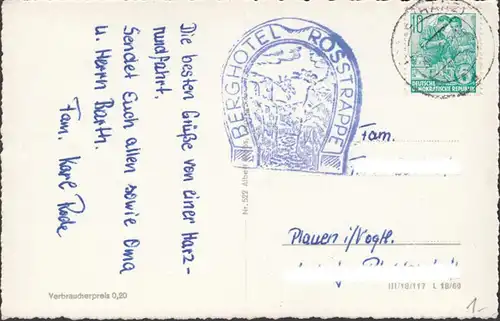 Die besten Grüße von einer Harz-
rundfahrt.
Sendet Euch allen sowie Oma
u. Herrn Barth.
Fam. Karl Rode
Verbraucherpreis 0,20
Nr. 522
BERGHOTEL ROSSTRAPPE
(HARZ)
10
DEUTSCHE
DEMOKRATISCHE REPUBLIK
Fam.
Plauen i/Vogtl.
III/18/117 L 18/60
1-